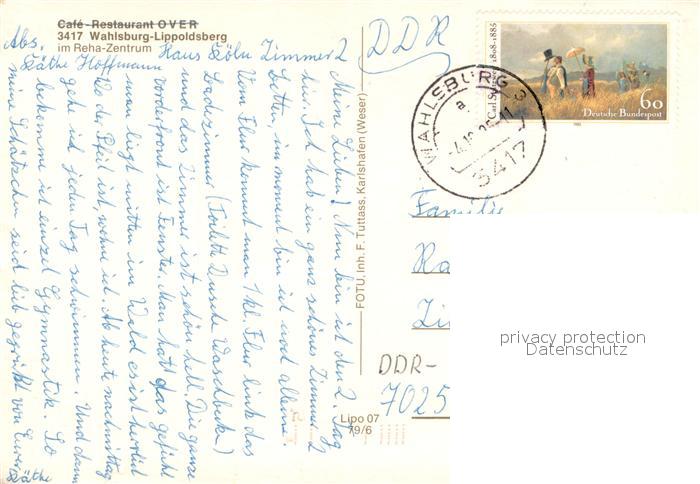 Café-Restaurant OVER
3417 Wahlsburg-Lippoldsberg
im Reha-Zentrum Haus Köln Zimmer 2
Abs.
Käthe Hoffmann
DDR
Meine Lieben! Nun bin ich den 2. Tag
hier. Ich hab ein ganz schönes Zimmer 2
Betten, im moment bin ich noch alleine.
Vom Flur kommt man 1 kl. Flur links das
Badezimmer (Toilette Dusche Waschbecken)
und das Zimmer ist schön hell. Die ganze
Vorderfront ist Fenster. Man hat das gefühl
man liegt mitten im Wald es ist herrlich
Wo der Pfeil ist, wohne ich. Ab heute nachmittag
gehe ich jeden Tag schwimmen. Und dann
bekomme ich einzel Gymnastik. So
meine Schätzchen seid lieb gegrüßt von Eurer
Käthe
FOTU, Inh. F. Tuttass, Karlshafen (Weser)
Lipo 07
79/6
Carl Spitzweg 1808-1885
60
Deutsche Bundespost
WAHLSBURG 3
a
3417
Familie
DDR-
7025
privacy protection
Datenschutz